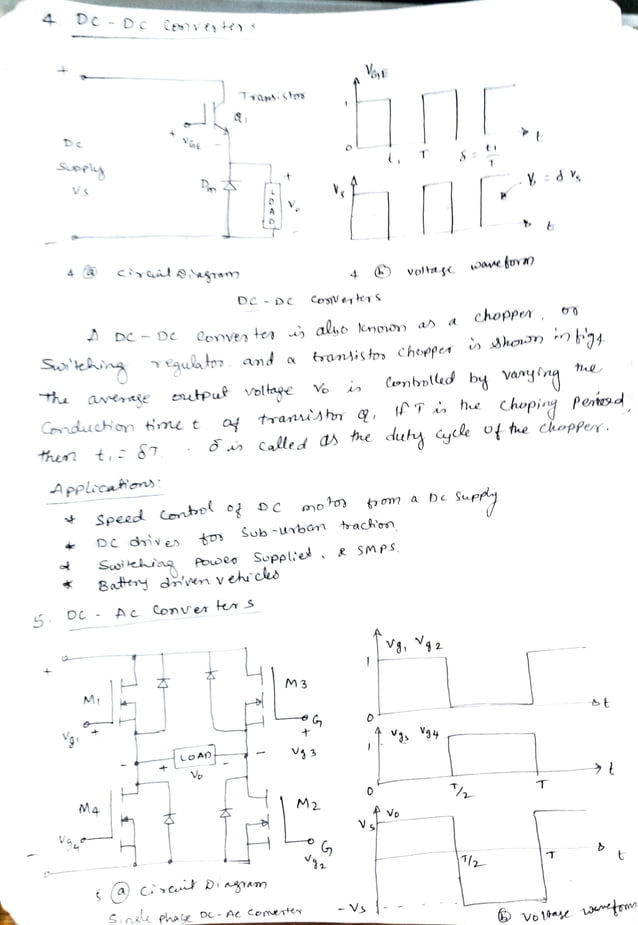 4. DC - DC Converters
+
Transistor
Q1
+ VGE -
DC
Supply
Vs
Dm
LOAD
+
Vo
-
VGE
1
0
t1 T δ = t1/T
t
Vs
Vo = δ Vs
t
4 (a) Circuit Diagram
4 (b) voltage waveform
DC - DC Converters
A DC - DC Converter is also known as a chopper or
Switching regulator and a transistor chopper is shown in fig 4
The average output voltage Vo is controlled by varying the
Conduction time t of transistor Q1 If T is the choping period,
then t1 = δT . δ is called as the duty cycle of the chopper.
Applications:
* Speed Control of DC motor from a DC Supply
* DC drives for Sub-urban traction
* Switching Power Supplies, & SMPS.
* Battery driven vehicles
5. DC - AC Converters
+
M1
Vg1
+
M3
G
+
Vg3
- LOAD -
+ Vo
M4
Vg4
M2
G
Vg2
-
Vg1 Vg2
1
0
t
Vg3 Vg4
1
0
T/2 T
t
Vs
Vo
T/2 T
t
-Vs
5 (a) Circuit Diagram
Single phase DC-AC Converter
(b) Voltage waveform